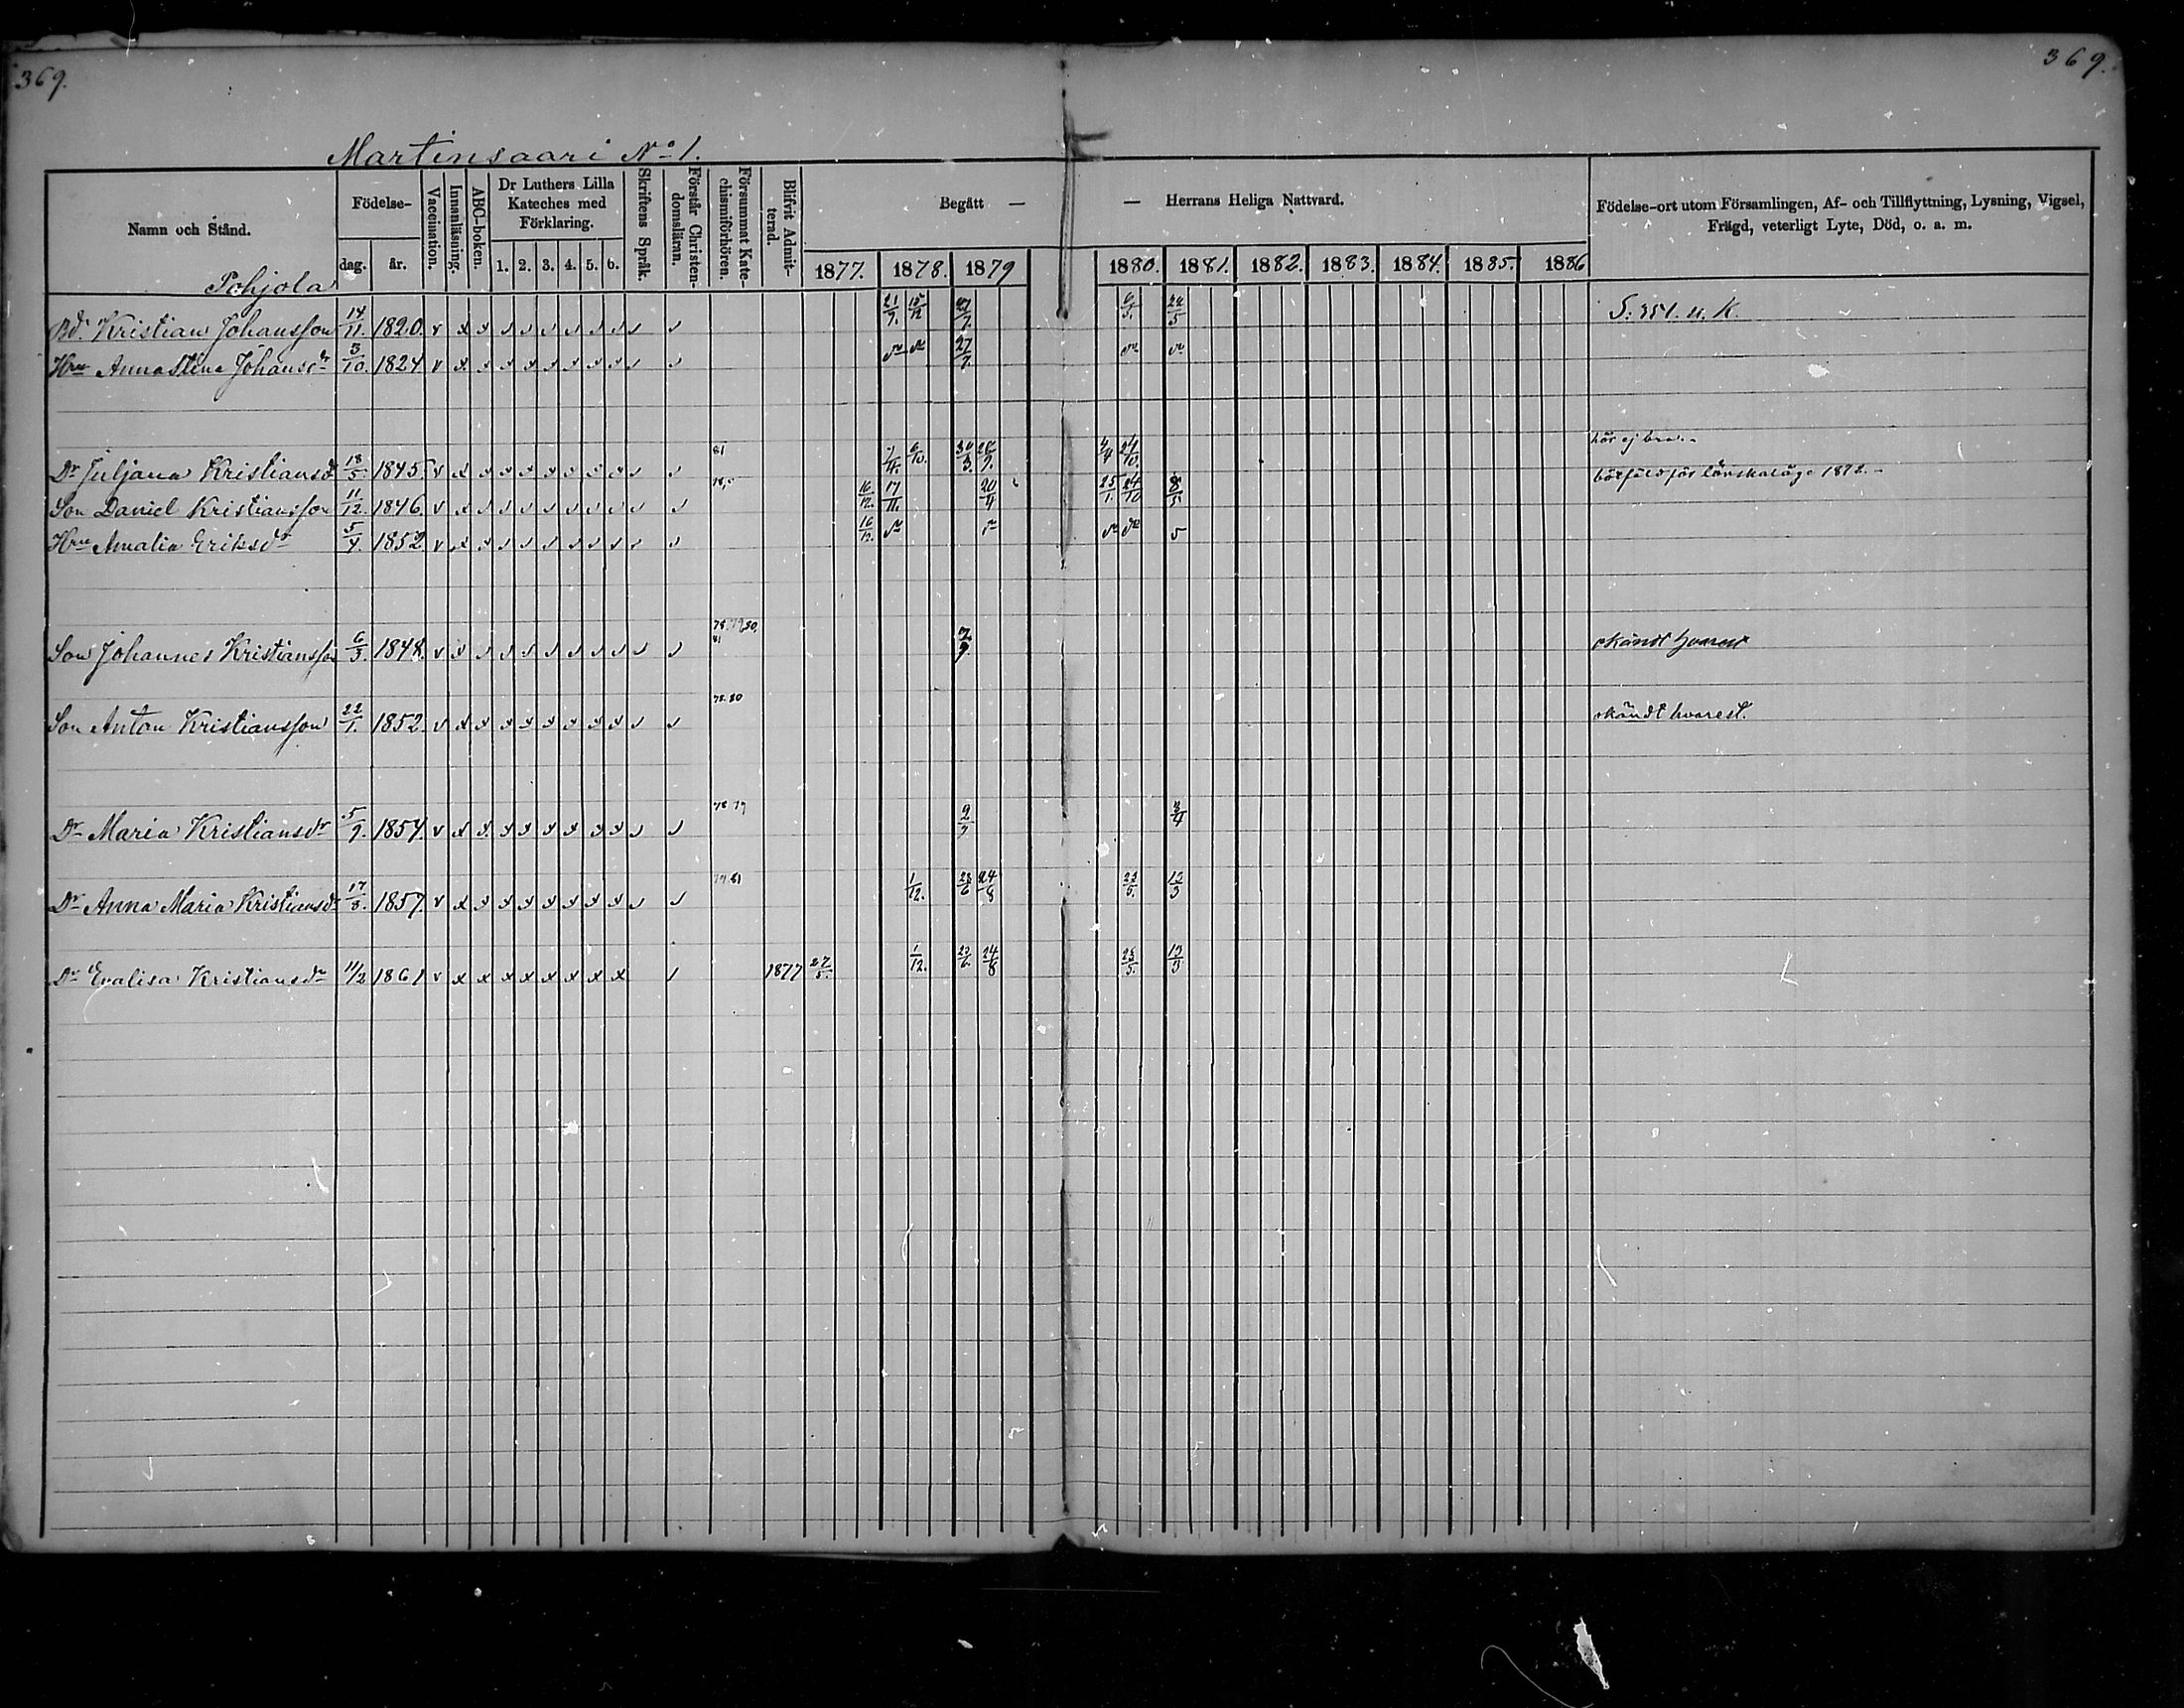 369.
369.
Martinsaari No 1.
Namn och Stånd.
Födelse-
dag. år.
Vaccination.
Innanläsning.
ABC-boken.
Dr Luthers Lilla Kateches med Förklaring.
1. 2. 3. 4. 5. 6.
Skriftens Språk.
Förstår Christendomsläran.
Försummat Katechismiförhören.
Blifvit Admitterad.
Begått — — Herrans Heliga Nattvard.
1877. 1878. 1879 1880. 1881. 1882. 1883. 1884. 1885. 1886
Födelse-ort utom Församlingen, Af- och Tillflyttning, Lysning, Vigsel,
Frägd, veterligt Lyte, Död, o. a. m.
Pohjola
Bd. Kristian Johansson 14/11. 1820. v x x 21/7. 15/12 27/7. 6/5. 24/5 S: 351. u. K.
Hru Annastina Johansdr 3/10. 1824 v x 27/7.
Dr Juljana Kristiansdr 18/5. 1845. v x 81 6/10. 30/3. 4/4 24/10. hör ej bra.
Son Daniel Kristiansson 11/12. 1846. v x 16/12. 17/11. 20/11 25/1. 24/10 1872.
Hru Amalia Eriksdr 5/4. 1852 v x 16/12. 5
Son Johannes Kristiansson 6/3. 1848. v 78, 79, 80, 81 okändt hvarest
Son Anton Kristiansson 22/1. 1852. v x 78. 80 okändt hvarest.
Dr Maria Kristiansdr 5/9. 1854. v x x 78 79 2/7
Dr Anna Maria Kristiansdr 17/8. 1857. v x 79. 81 1/12. 23/6 24/8 23/5. 13/3
Dr Evalisa Kristiansdr 11/2 1861 v x x x x x x x x 1877 27/5. 1/12. 23/6. 24/8 23/5. 13/3